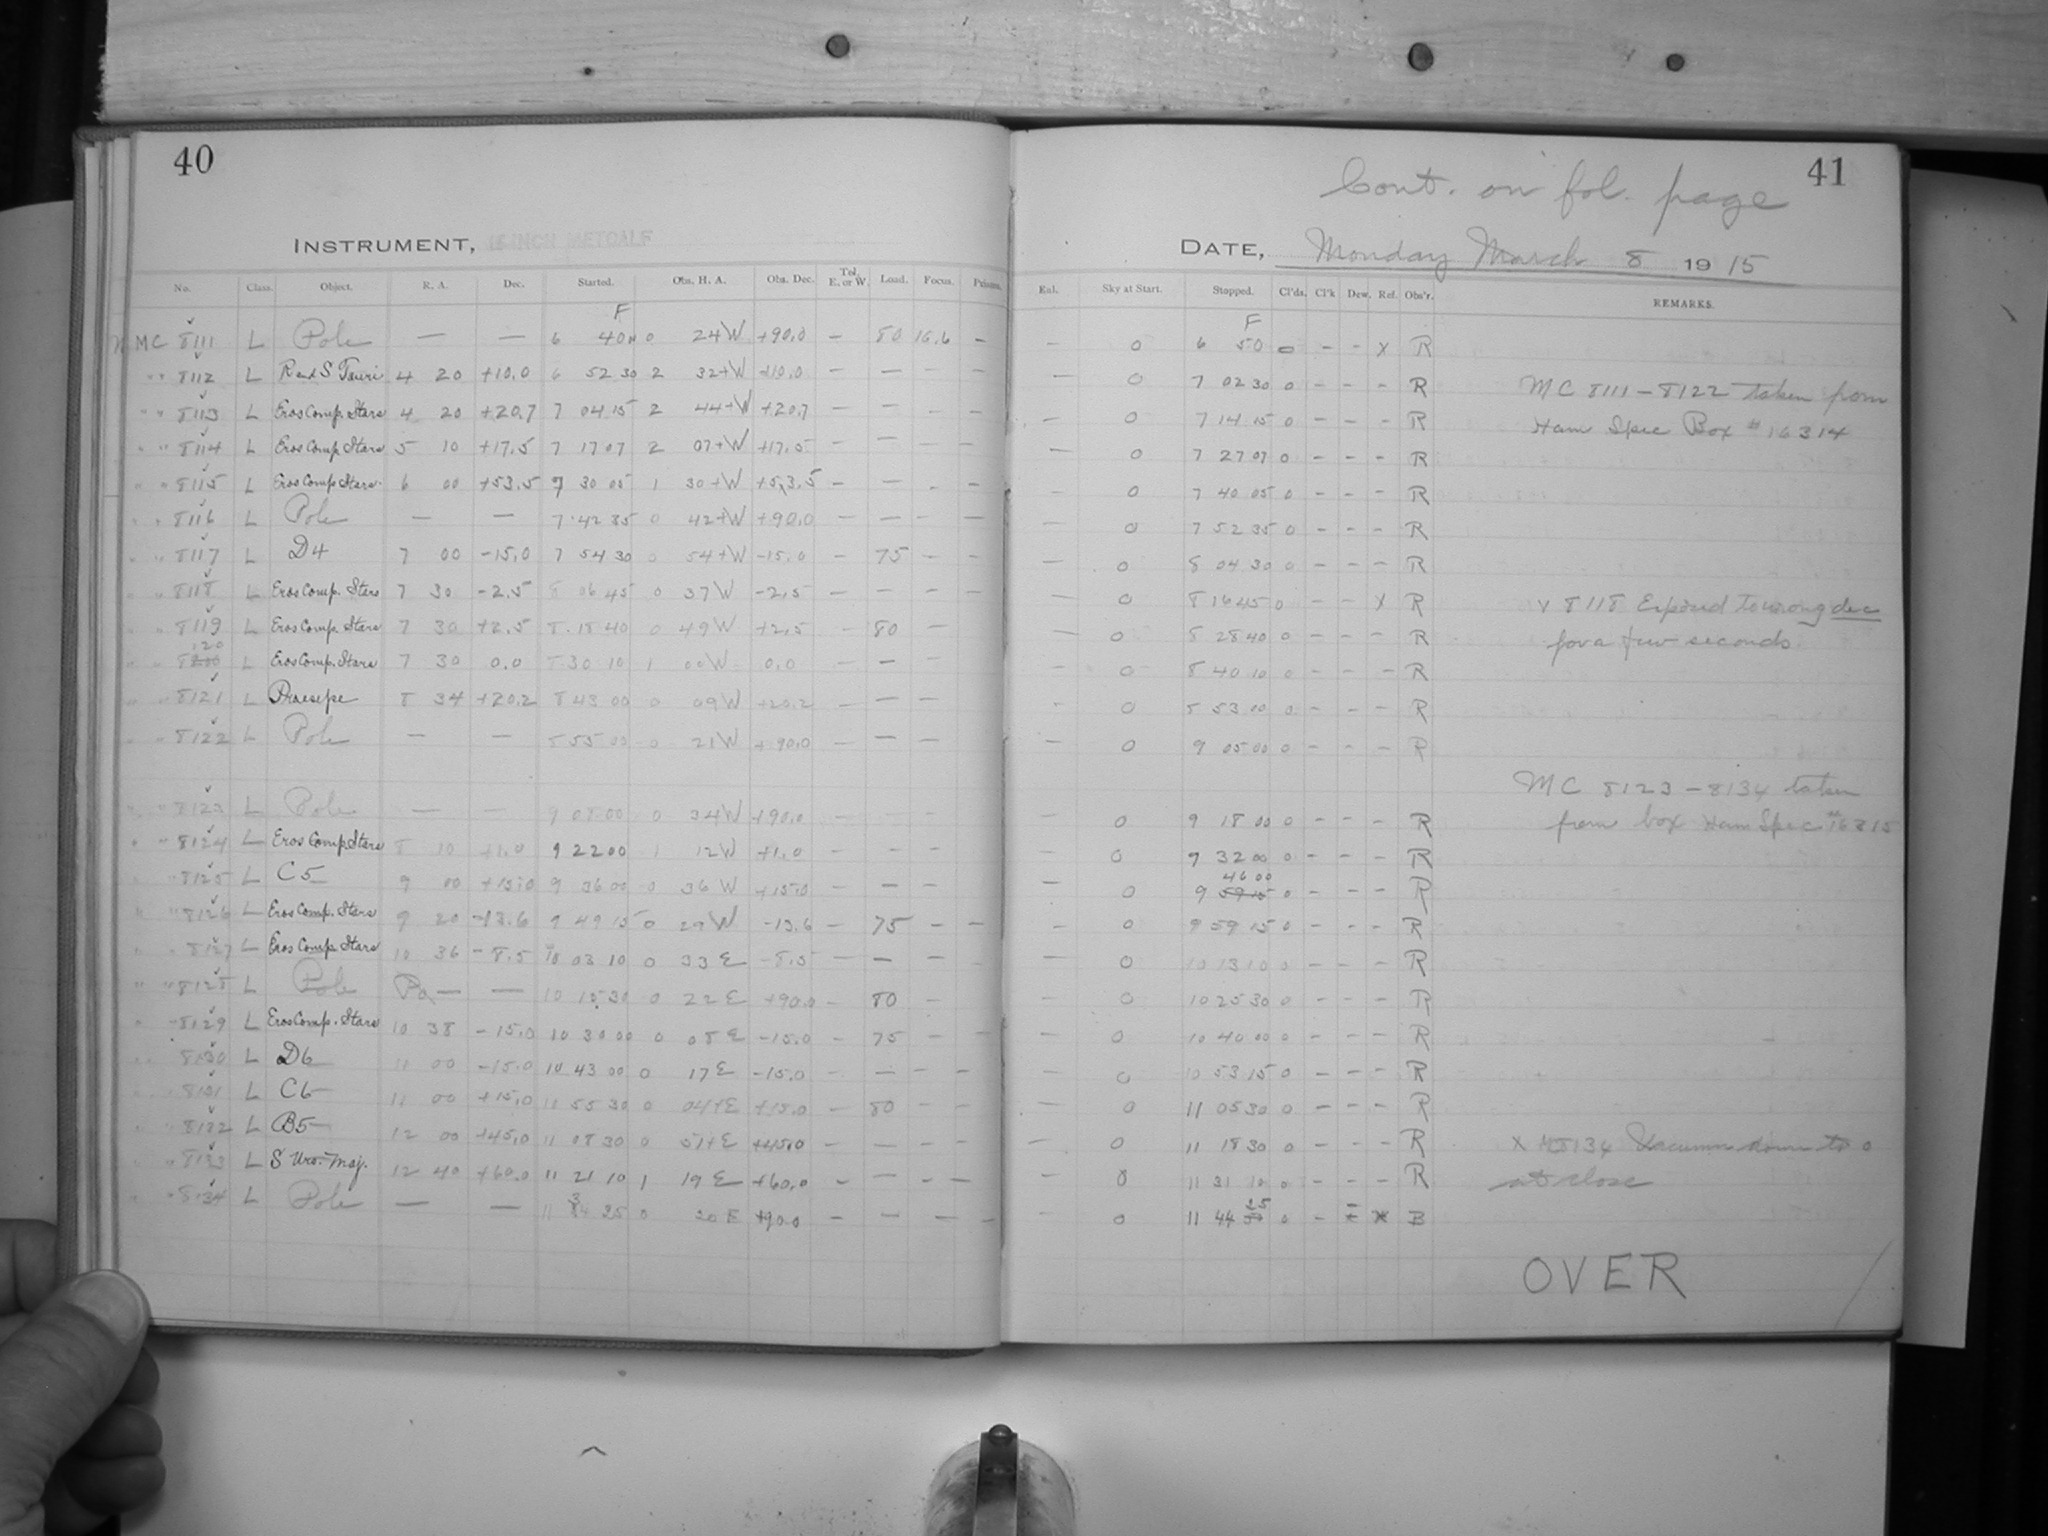 40
INSTRUMENT, 16 INCH METCALF
No. Class. Object. R. A. Dec. Started. Obs. H. A. Obs. Dec. Tel. E. or W. Load. Focus. Prisms.
F
MC 8111 L Pole — — 6 40 0 24W +90.0 — 80 16.6 —
" " 8112 L R and S Tauri 4 20 +10.0 6 52 30 2 32+W +10.0 — — — —
" " 8113 L Eros Comp. Stars 4 20 +20.7 7 04 15 2 44+W +20.7 — — — —
" " 8114 L Eros Comp Stars 5 10 +17.5 7 17 07 2 07+W +17.5 — — — —
" " 8115 L Eros Comp Stars. 6 00 +53.5 7 30 05 1 30+W +53.5 — — - —
" " 8116 L Pole — — 7 42 35 0 42+W +90.0 — — — —
" " 8117 L D4 7 00 -15.0 7 54 30 0 54+W -15.0 — 75 — —
" " 8118 L Eros Comp. Stars 7 30 -2.5 8 06 45 0 37W -2.5 — — — —
" " 8119 L Eros Comp. Stars 7 30 +2.5 8 18 40 0 49W +2.5 — 80 —
120
" " 8200 L Eros Comp. Stars 7 30 0.0 8 30 10 1 00W 0.0 — — —
" " 8121 L Praesepe 8 34 +20.2 8 43 00 0 09W +20.2 — — —
" " 8122 L Pole — — 8 55 00 0 21W +90.0 — — —
" " 8123 L Pole — — 9 08 00 0 34W +90.0 — — —
" " 8124 L Eros Comp Stars 8 10 +1.0 9 22 00 1 12W +1.0 — — —
" " 8125 L C5 9 00 +15.0 9 36 00 0 36W +15.0 — — —
" " 8126 L Eros Comp. Stars 9 20 -13.6 9 49 15 0 29W -13.6 — 75 — —
" " 8127 L Eros Comp. Stars 10 36 -8.5 10 03 10 0 33E -8.5 — — — —
" " 8128 L Pole — — 10 15 30 0 22E +90.0 — 80 —
" " 8129 L Eros Comp. Stars 10 38 -15.0 10 30 00 0 08E -15.0 — 75 — —
" " 8130 L D6 11 00 -15.0 10 43 00 0 17E -15.0 — — — —
" " 8131 L C6 11 00 +15.0 11 55 30 0 04+E +15.0 — 80 — —
" " 8132 L B5 12 00 +45.0 11 08 30 0 51+E +45.0 — — — —
" " 8133 L S Urs. Maj. 12 40 +60.0 11 21 10 1 19E +60.0 — — — —
" " 8134 L Pole — — 11 34 25 0 20E +90.0 — — — —
41
Cont. on fol. page
DATE, Monday March 8 1915
Ent. Sky at Start. Stopped. Cl'ds. Cl'k Dew. Ref. Obs'r. REMARKS.
F
— 0 6 50 0 - - x R
— 0 7 02 30 0 - - - R MC 8111 — 8122 taken from
— 0 7 14 15 0 - - - R Ham Spec Box # 16314
— 0 7 27 07 0 - - - R
— 0 7 40 05 0 - - - R
— 0 7 52 35 0 - - - R
— 0 8 04 30 0 - - - R
— 0 8 16 45 0 - - X R x 8118 Exposed to wrong dec
— 0 8 28 40 0 - - - R for a few seconds
— 0 8 40 10 0 - - - R
— 0 8 53 00 0 - - - R
— 0 9 05 00 0 - - - R
MC 8123 — 8134 taken
— 0 9 18 00 0 - - - R from box Ham Spec #16315
— 0 9 32 00 0 - - - R
46 00
— 0 9 59 15 0 - - - R
— 0 9 59 15 0 - - - R
— 0 10 13 10 0 - - - R
— 0 10 25 30 0 - - - R
— 0 10 40 00 0 - - - R
— 0 10 53 15 0 - - - R
— 0 11 05 30 0 - - - R
— 0 11 18 30 0 - - - R X 8134 Vacuum down to 0
— 0 11 31 10 0 - - - R at close
25
— 0 11 44 0 - - x B
OVER